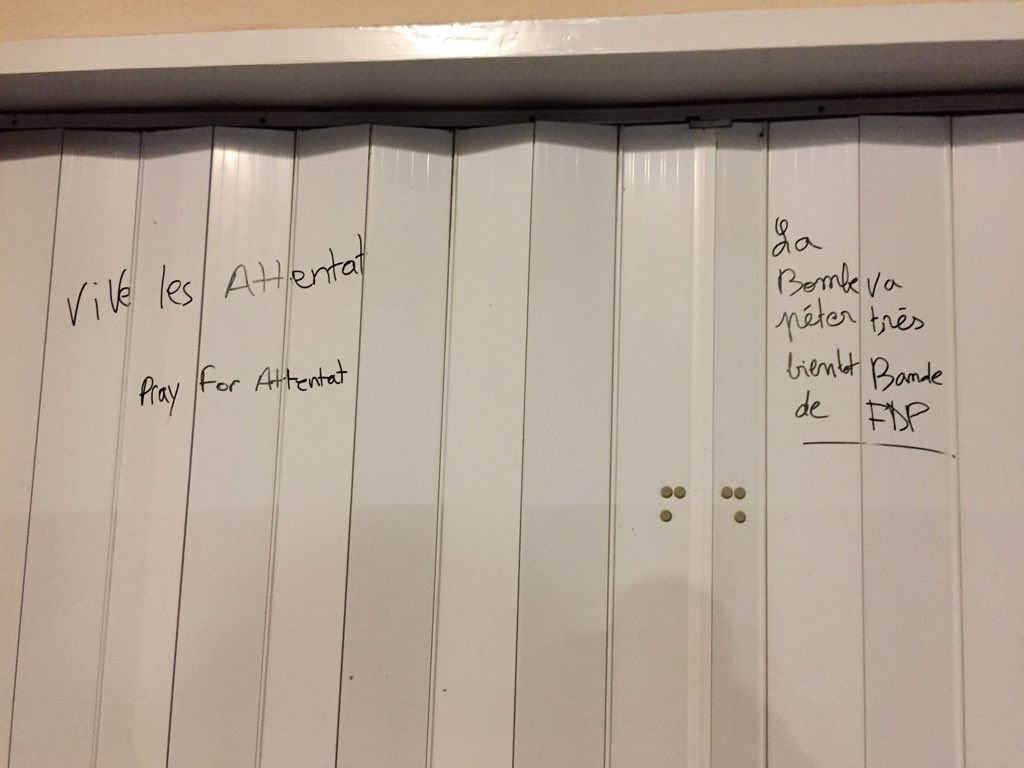 Vive les Attentat
Pray For Attentat
La
Bombe va
péter trés
bientot Bande
de FDP